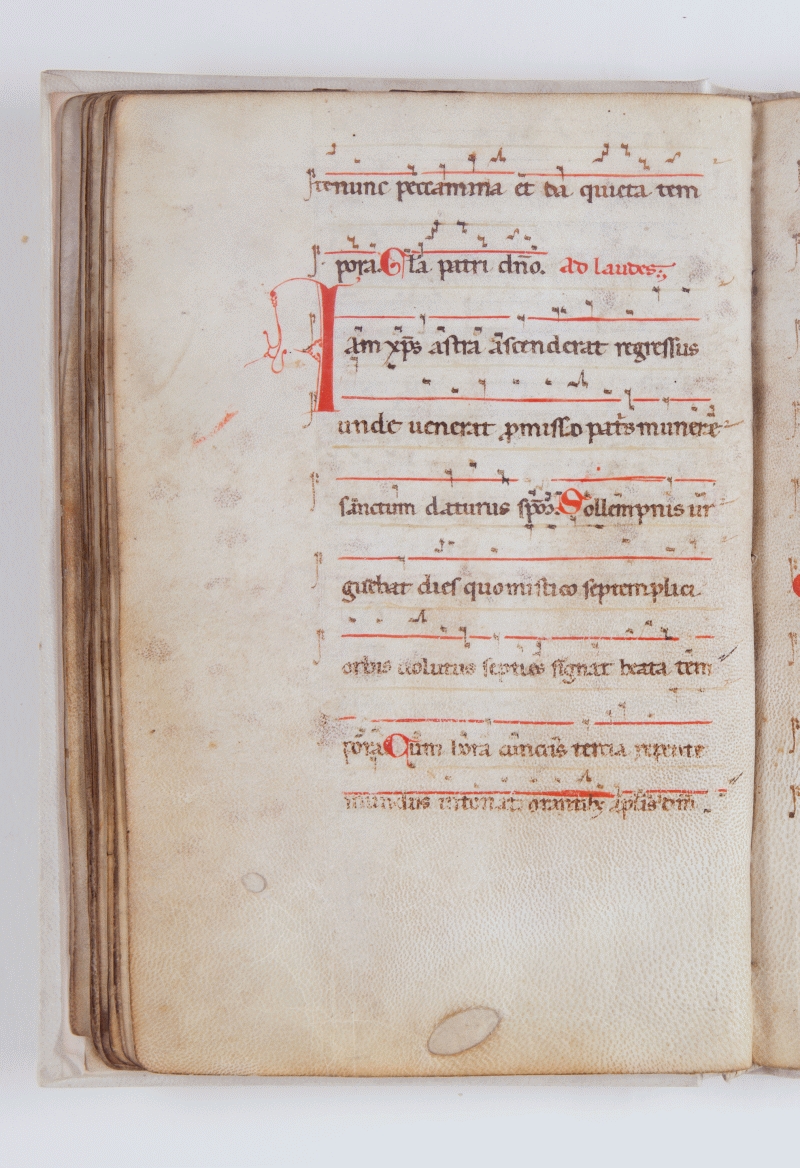 tenunc peccamina et da quieta tem
pora. Gla patri dño. Ad laudes.
Iam xp̄s astra ascenderat regressus
unde uenerat ꝓmisso pat̄s munere
sanctum daturus sp̄m. Sollempnis ur
guebat dies quo mistico septemplici
orbis uolutus septies signat beata tem
pora Cum hora cunctis tercia repente
mundus intonat